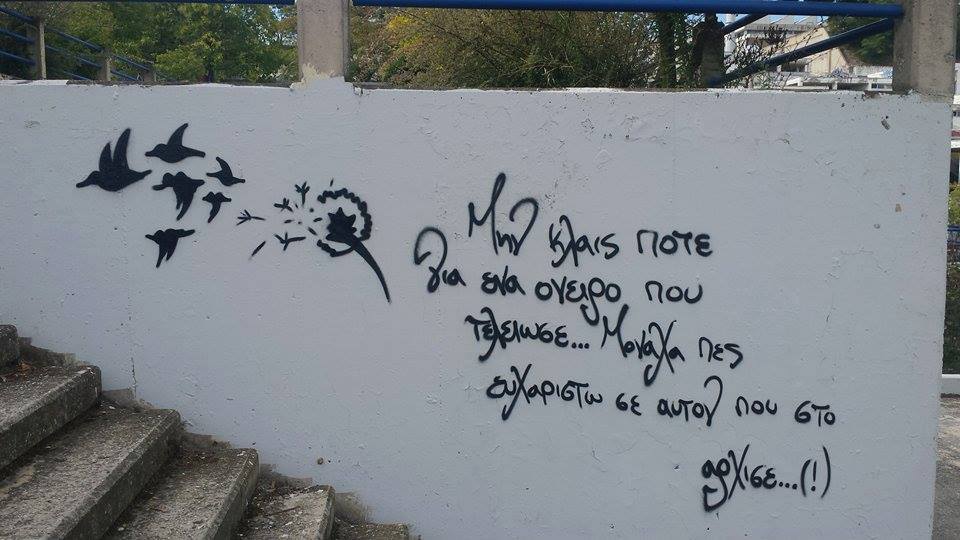 Μην κλαις ποτε
για ενα ονειρο που
τελειωσε... Μοναχα πες
ευχαριστω σε αυτον που στο
αρχισε...(!)